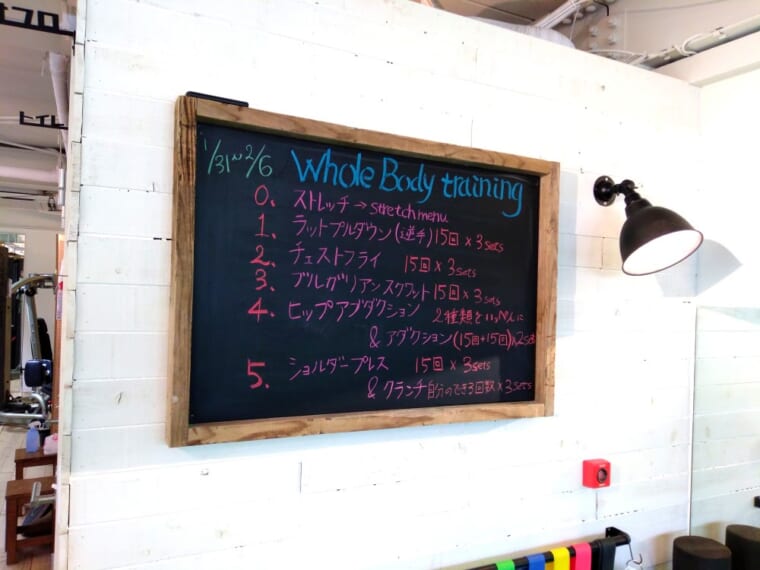 1/31〜2/6 Whole Body training
0. ストレッチ → stretch menu
1. ラットプルダウン (逆手) 15回 × 3sets
2. チェストフライ 15回 × 3sets
3. ブルガリアンスクワット 15回 × 3sets
4. ヒップアブダクション 2種類をいっぺんに
& アダクション (15回+15回) × 2sets
5. ショルダープレス 15回 × 3sets
& クランチ 自分のできる回数 × 3sets
トイレ